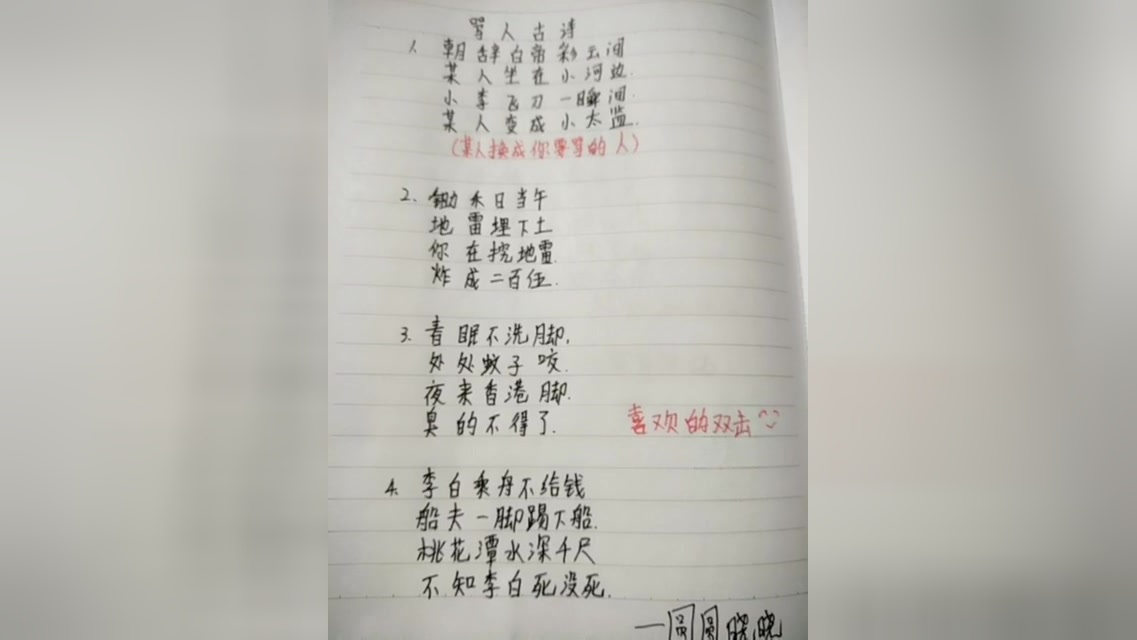 骂人古诗
1. 朝辞白帝彩云间
某人坐在小河边.
小李飞刀一瞬间.
某人变成小太监.
(某人换成你要骂的人)
2. 锄禾日当午
地雷埋下土
你在挖地雷.
炸成二百伍.
3. 春眠不洗脚,
处处蚊子咬.
夜来香港脚.
臭的不得了.
喜欢的双击~
4. 李白乘舟不给钱
船夫一脚踢下船.
桃花潭水深千尺
不知李白死没死.
—圆圆晓晓